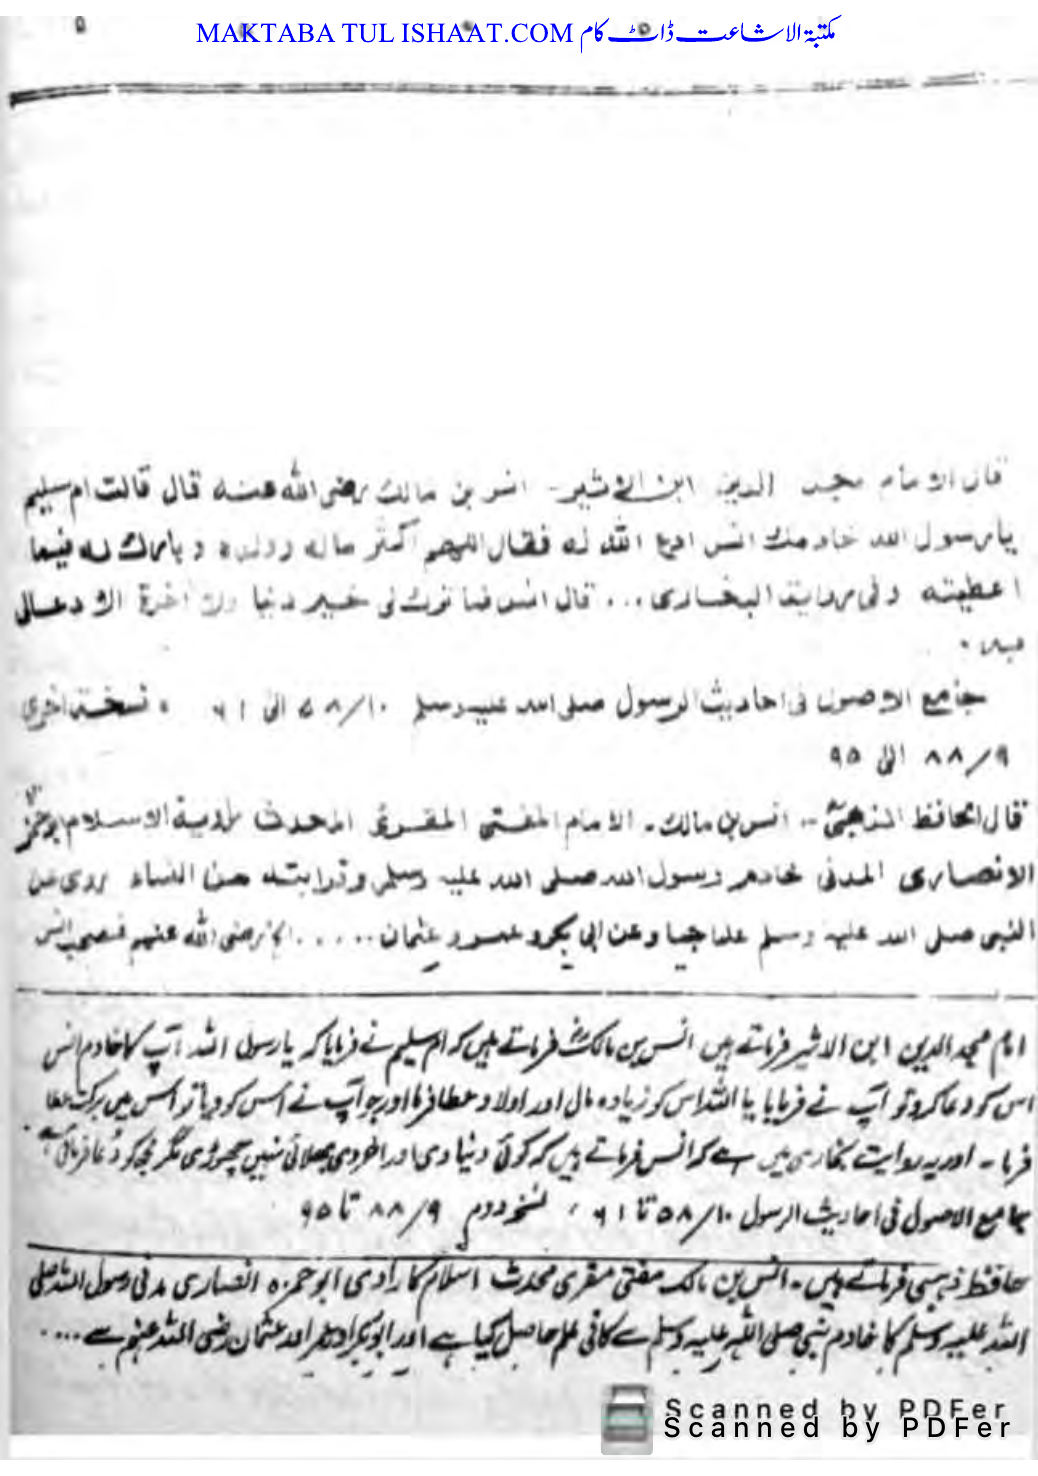 MAKTABA TUL ISHAAT.COM مکتبۃ الاشاعت ڈاٹ کام
۵
قال الامام مجد الدين ابن الاثير۔ انس بن مالك رضى الله عنه قال قالت ام سليم
يا رسول الله خادمك انس ادع الله له فقال اللهم أكثر ماله وولده و بارك له فيما
اعطيته وفى رواية البخارى... قال انس فما ترك لى خير دنيا ولا آخرة الا دعالى
به ۔
جامع الاصول فى احاديث الرسول صلى الله عليه وسلم ۱۰/۵۸ الى ۶۱ ، نسخة اخرى
۹/۸۸ الى ۹۵
قال الحافظ الذهبىؒ۔ انس بن مالك۔ الامام المفتى المقرئ المحدث راوية الاسلام ابو حمزة
الانصارى المدنى خادم رسول الله صلى الله عليه وسلم وقرابته من النساء روى عن
النبى صلى الله عليه وسلم علما جما وعن ابى بكر وعمر و عثمان ..... الخ رضى الله عنهم فصحب انس
امام مجد الدین ابن الاثیر فرماتے ہیں انس بن مالکؓ فرماتے ہیں کہ ام سلیم نے فرمایا کہ یا رسول اللہ آپ کا خادم انس
اس کو دعا کرو تو آپ نے فرمایا یا اللہ اس کو زیادہ مال اور اولاد عطا فرما اور جو آپ نے اس کو دیا تو اس میں برکت عطا
فرما۔ اور یہ روایت بخاری میں ہے کہ انس فرماتے ہیں کہ کوئی دنیاوی اور اخروی بھلائی نہیں چھوڑی مگر مجھ کو دعا فرمائی ہے
جامع الاصول فی احادیث الرسول ۱۰/۵۸ تا ۶۱ ، نسخہ دوم ۹/۸۸ تا ۹۵
حافظ ذہبی فرماتے ہیں۔ انس بن مالک مفتی مقری محدث اسلام کا راوی ابو حمزہ انصاری مدنی رسول اللہ صلی
اللہ علیہ وسلم کا خادم نبی صلی اللہ علیہ وسلم سے کافی علم حاصل کیا ہے اور ابوبکر اور عمر اور عثمان رضی اللہ عنہم سے ....
Scanned by PDFer
Scanned by PDFer